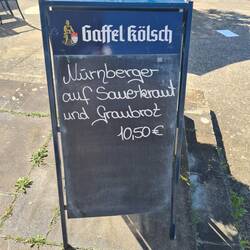 Gaffel Kölsch
Nürnberger
auf Sauerkraut
und Graubrot
10,50€